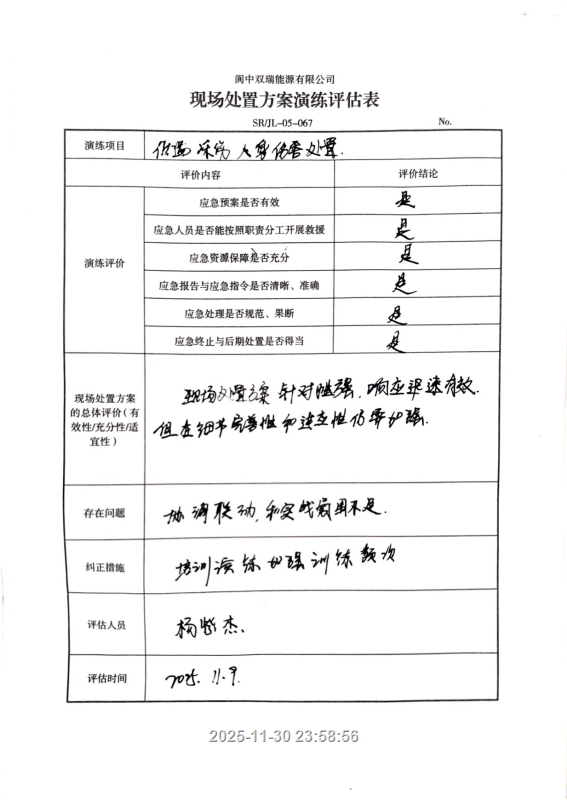 阆中双瑞能源有限公司
现场处置方案演练评估表
SR/JL-05-067 No.
演练项目 人身伤害处置.
评价内容 评价结论
演练评价
应急预案是否有效 是
应急人员是否能按照职责分工开展救援 是
应急资源保障是否充分 是
应急报告与应急指令是否清晰、准确 是
应急处理是否规范、果断 是
应急终止与后期处置是否得当 是
现场处置方案
的总体评价（有
效性/充分性/适
宜性）
现场处置方案针对性强,响应迅速有效.
但在细节完善性和适应性仍要加强.
存在问题 协调联动,和实战应用不足.
纠正措施 培训演练加强训练频次
评估人员 杨 杰.
评估时间 2025.11.9.
2025-11-30 23:58:56